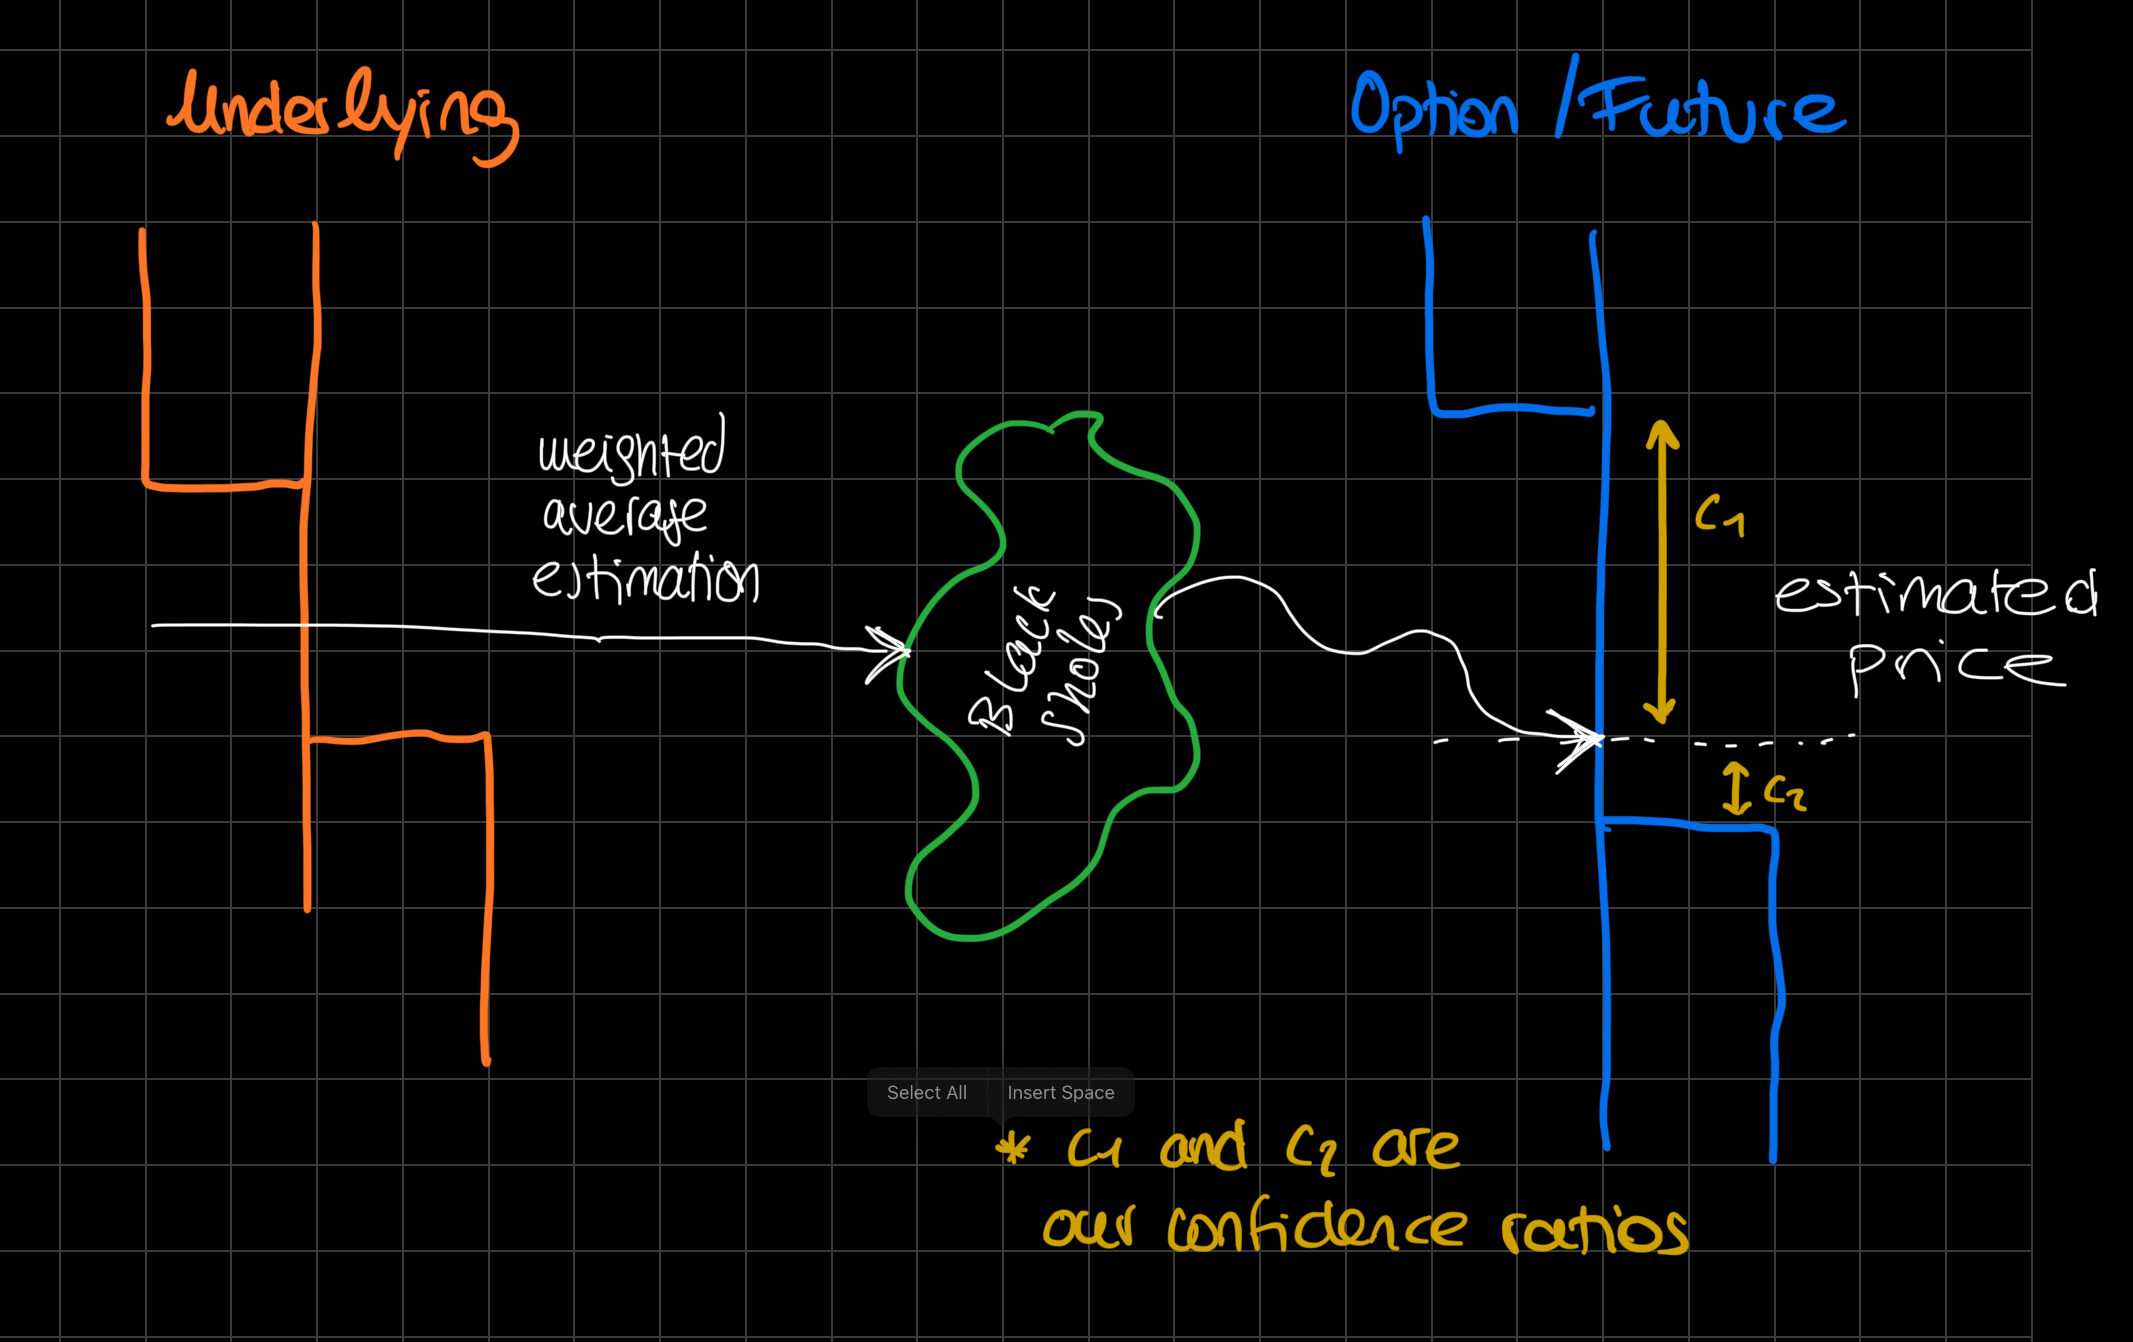 Underlying
Option/Future
weighted
average
estimation
Black
Sholes
C1
estimated
price
C2
Select All
Insert Space
* C1 and C2 are
our confidence ratios